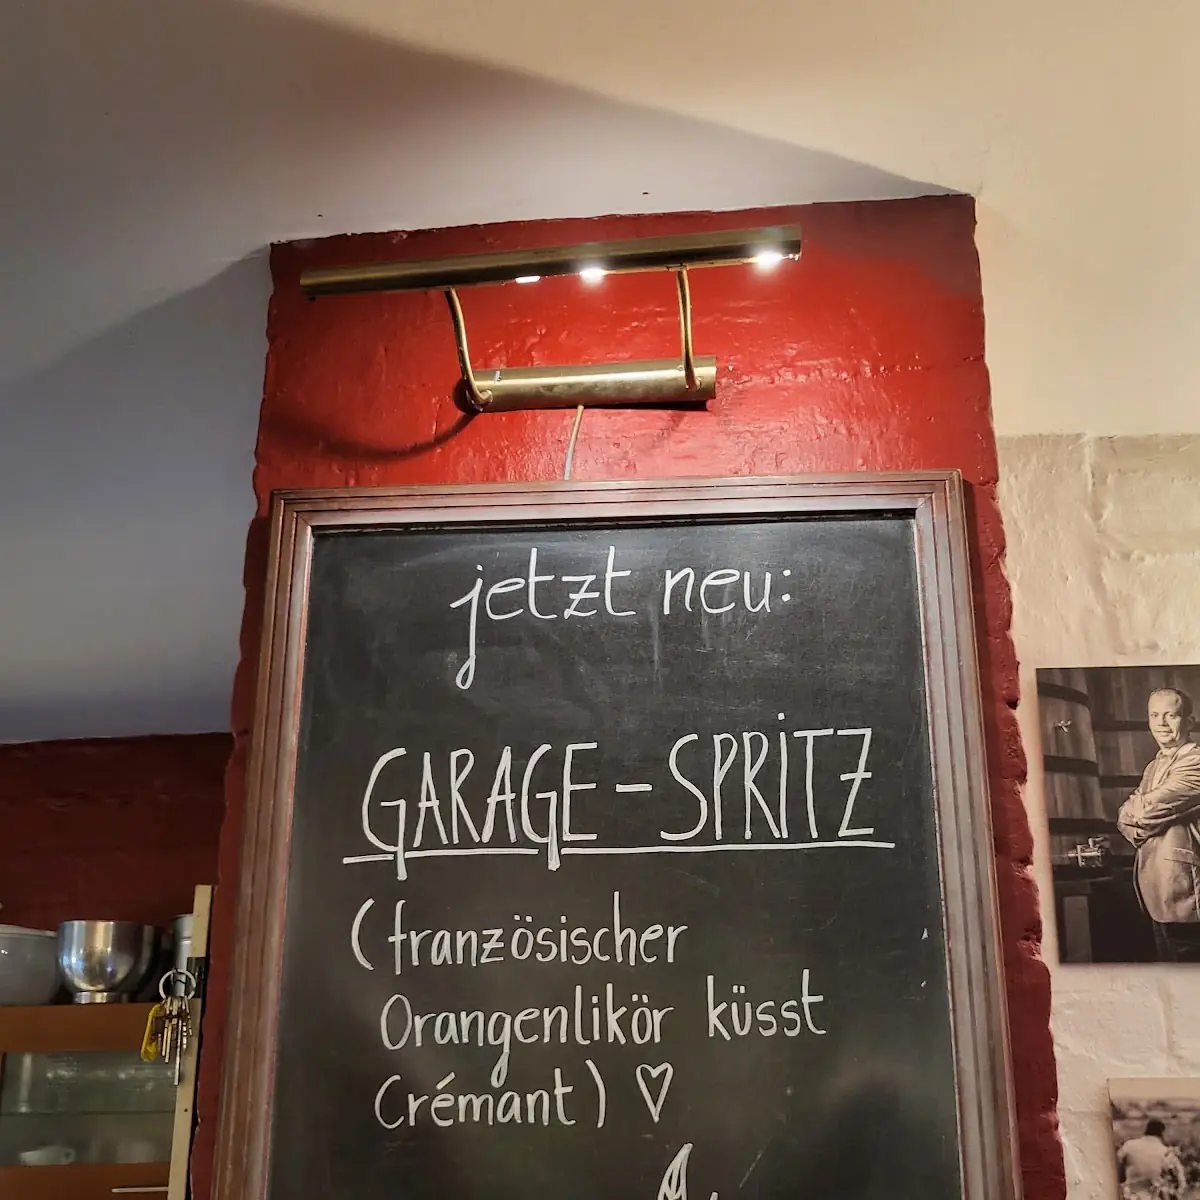 jetzt neu:
GARAGE-SPRITZ
(französischer
Orangenlikör küsst
Crémant) ♡